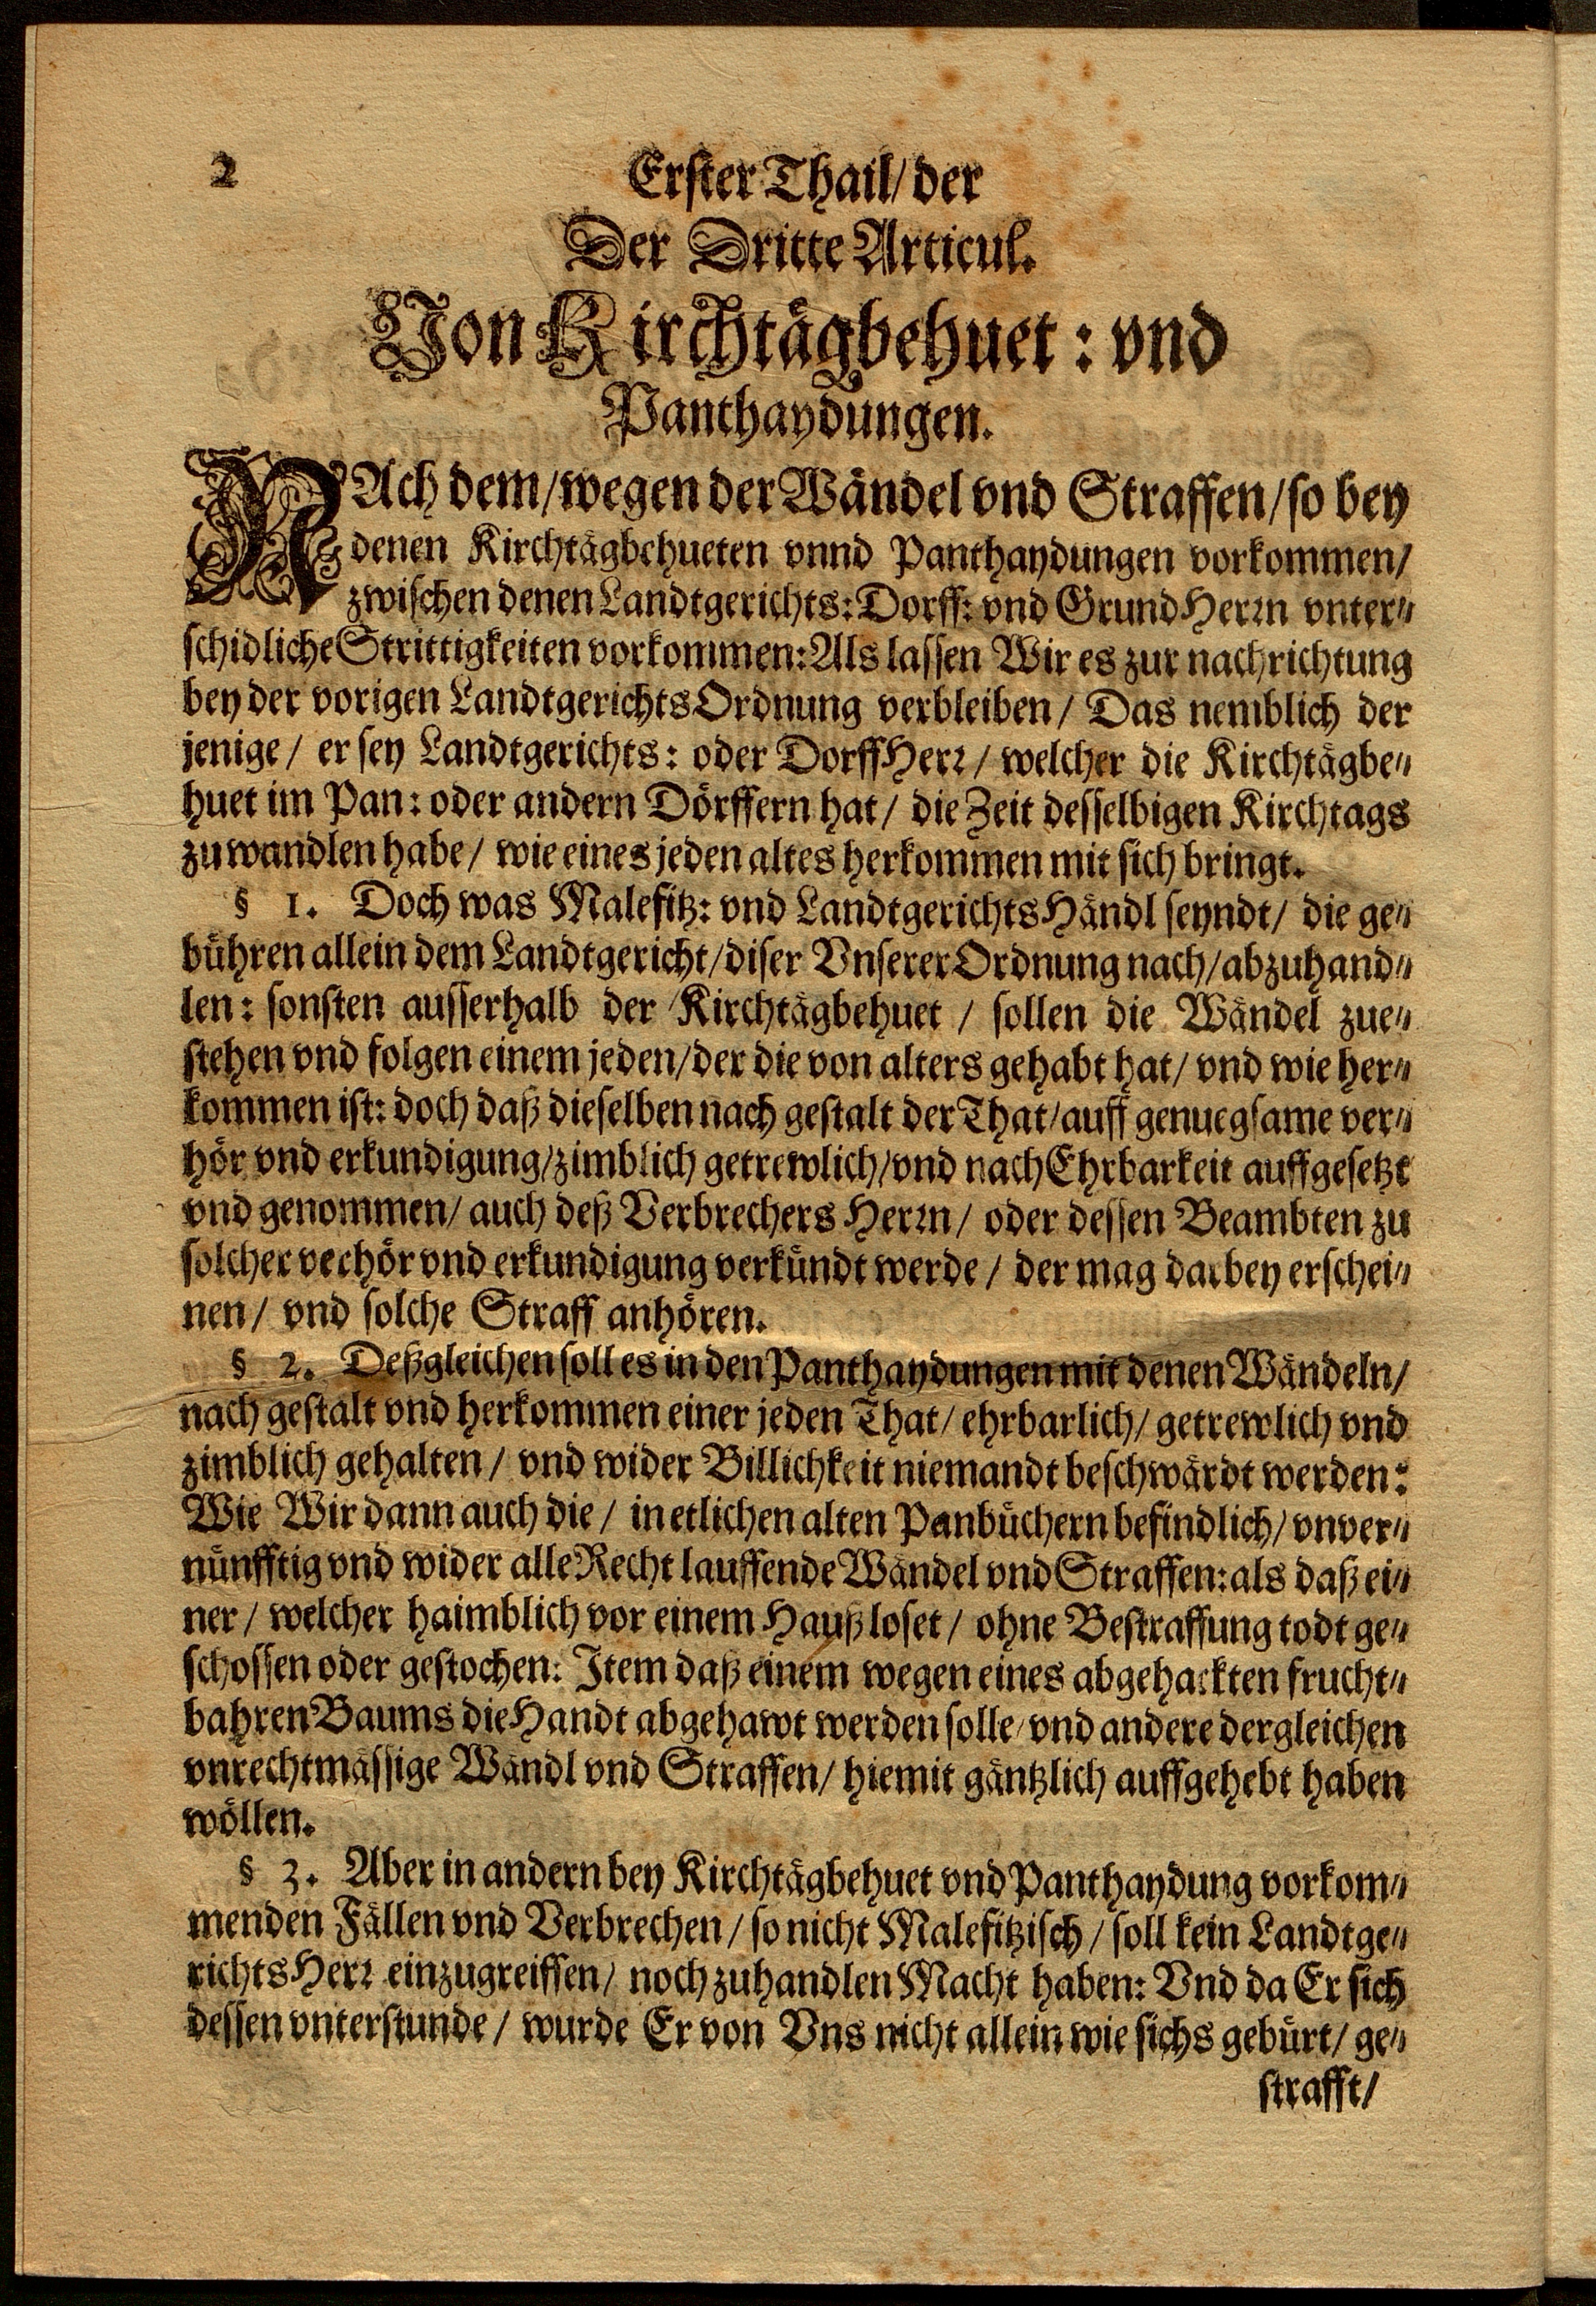 2
Erster Thail/ der
Der Dritte Articul.
Von Kirchtägbehuet: vnd
Panthaydungen.
NAch dem/ wegen der Wändel vnd Straffen/ so bey
denen Kirchtägbehueten vnnd Panthaydungen vorkommen/
zwischen denen Landtgerichts: Dorff: vnd Grund Herrn vnter⸗
schidliche Strittigkeiten vorkommen: Als lassen Wir es zur nachrichtung
bey der vorigen LandtgerichtsOrdnung verbleiben/ Das nemblich der
jenige/ er sey Landtgerichts: oder DorffHerr/ welcher die Kirchtägbe⸗
huet im Pan: oder andern Dörffern hat/ die Zeit desselbigen Kirchtags
zu wandlen habe/ wie eines jeden altes herkommen mit sich bringt.
§ 1. Doch was Malefitz: vnd LandtgerichtsHändl seyndt/ die ge⸗
bühren allein dem Landtgericht/ diser Vnserer Ordnung nach/ abzuhand⸗
len: sonsten ausserhalb der Kirchtägbehuet/ sollen die Wändel zue⸗
stehen vnd folgen einem jeden/ der die von alters gehabt hat/ vnd wie her⸗
kommen ist: doch daß dieselben nach gestalt der That/ auff genuegsame ver⸗
hör vnd erkundigung/ zimblich getrewlich/ vnd nach Ehrbarkeit auffgesetzt
vnd genommen/ auch deß Verbrechers Herrn/ oder dessen Beambten zu
solcher verhör vnd erkundigung verkündt werde/ der mag darbey erschei⸗
nen/ vnd solche Straff anhören.
§ 2. Deßgleichen soll es in den Panthaydungen mit denen Wändeln/
nach gestalt vnd herkommen einer jeden That/ ehrbarlich/ getrewlich vnd
zimblich gehalten/ vnd wider Billichkeit niemandt beschwärdt werden:
Wie Wir dann auch die/ in etlichen alten Panbüchern befindlich/ vnver⸗
nünfftig vnd wider alle Recht lauffende Wändel vnd Straffen: als daß ei⸗
ner/ welcher haimblich vor einem Hauß loset/ ohne Bestraffung todt ge⸗
schossen oder gestochen: Item daß einem wegen eines abgehackten frucht⸗
bahren Baums die Handt abgehawt werden solle/ vnd andere dergleichen
vnrechtmässige Wändl vnd Straffen/ hiemit gäntzlich auffgehebt haben
wöllen.
§ 3. Aber in andern bey Kirchtägbehuet vnd Panthaydung vorkom⸗
menden Fällen vnd Verbrechen/ so nicht Malefitzisch/ soll kein Landtge⸗
richtsHerr einzugreiffen/ noch zuhandlen Macht haben: Vnd da Er sich
dessen vnterstunde/ wurde Er von Vns nicht allein wie sichs gebürt/ ge⸗
strafft/